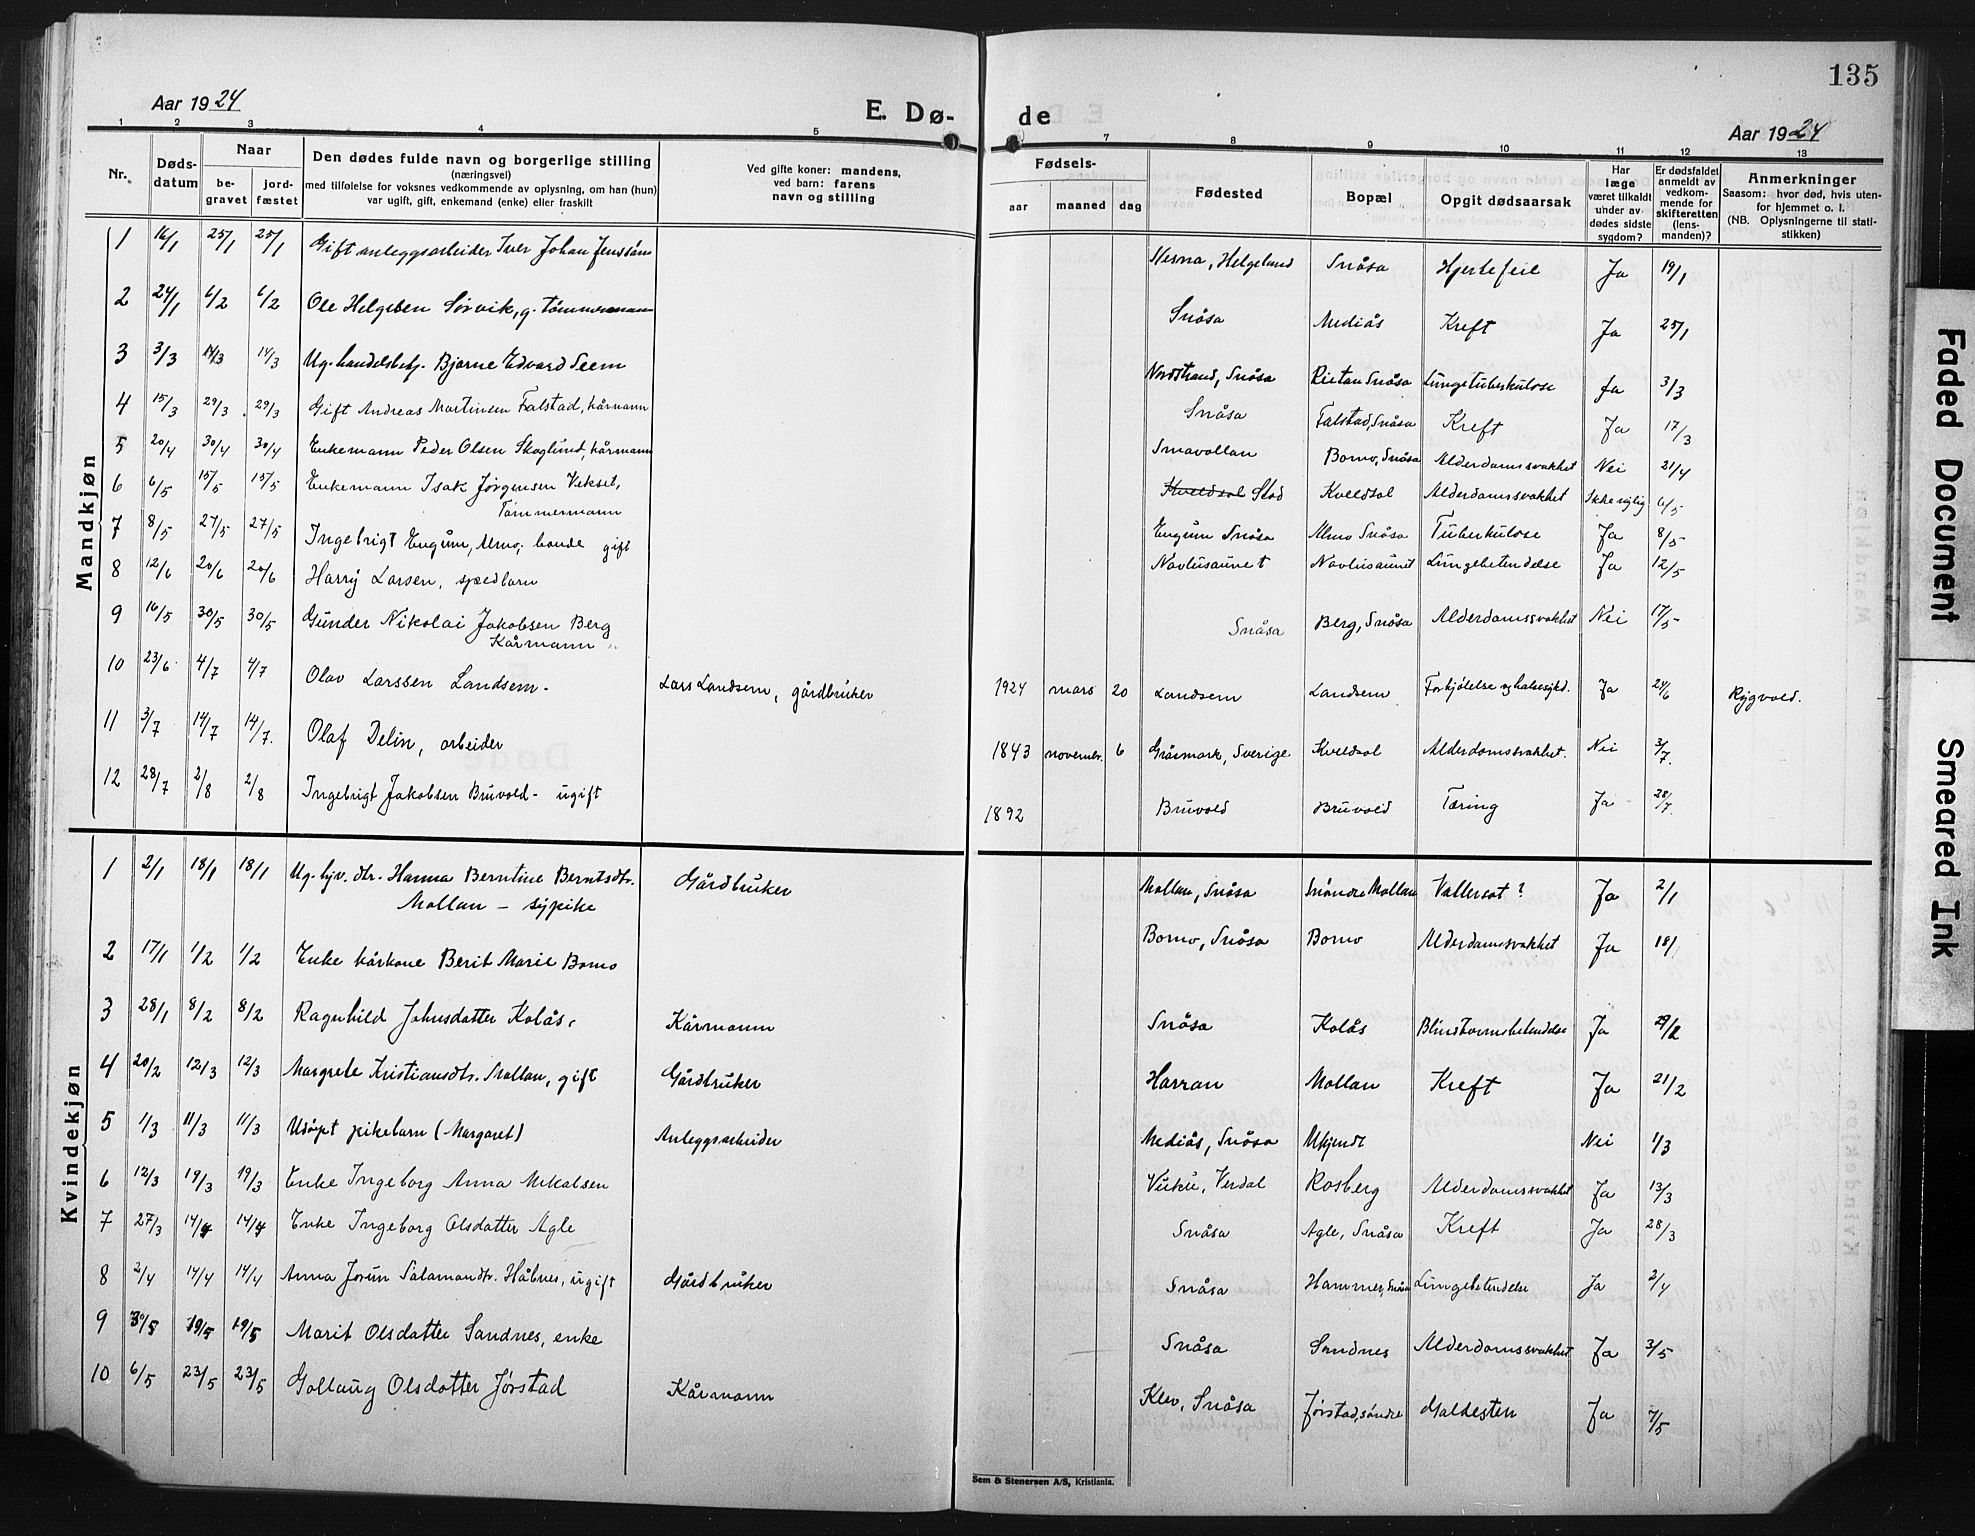 135
Aar 1924
E. Dø- de
Aar 1924
1 2 3 4 5 7 8 9 10 11 12 13
Nr.
Døds-datum
Naar
be-gravet
jord-fæstet
Den dødes fulde navn og borgerlige stilling
(næringsvei)
med tilføielse for voksnes vedkommende av oplysning, om han (hun)
var ugift, gift, enkemand (enke) eller fraskilt
Ved gifte koner: mandens,
ved barn: farens
navn og stilling
Fødsels-
aar maaned dag
Fødested
Bopæl
Opgit dødsaarsak
Har
læge
været tilkaldt
under av-
dødes sidste
sygdom?
Er dødsfaldet
anmeldt av
vedkom-
mende for
skifteretten
(lens-
manden)?
Anmerkninger
Saasom: hvor død, hvis uten-
for hjemmet o. l.
(NB. Oplysningerne til stati-
stikken)
Mandkjøn
1 16/1 25/1 25/1 Gift anleggsarbeider Iver Johan Jenssøn Nesna, Helgeland Snåsa Hjertefeil Ja 19/1
2 24/1 6/2 6/2 Ole Helgesen Sørvik, g. tømmermann Snåsa Mediås Kreft Ja 25/1
3 3/3 14/3 14/3 Ug. handelsbetj. Bjarne Edvard Seem Nordstrand, Snåsa Snåsa Lungetuberkulose Ja 3/3
4 15/3 29/3 29/3 Gift Andreas Martinsen Falstad, kårmann Snåsa Falstad, Snåsa Kreft Ja 17/3
5 20/4 30/4 30/4 Enkemann Peder Olsen Skoglund, kårmann Smavollan Bomo, Snåsa Alderdomssvakhet Nei 21/4
6 6/5 15/5 15/5 Enkemann Isak Jørgensen Vekset,
Tømmermann Kveldsol Stod Kveldsol Alderdomssvakhet Ikke sylig 6/5
7 8/5 27/5 27/5 Ingebrigt Engum, Almo, bonde gift Engum Snåsa Almo Snåsa Tuberkulose Ja 8/5
8 12/6 20/6 20/6 Harry Larsen, spedbarn Navlusaunet Navlusaunet Lungebetendelse Ja 12/5
9 16/5 30/5 30/5 Gunder Nikolai Jakobsen Berg
Kårmann Snåsa Berg, Snåsa Alderdomssvakhet Nei 17/5
10 23/6 4/7 4/7 Olav Larssen Landsem Lars Landsem, gårdbruker 1924 mars 20 Landsem Landsem Forkjølelse og halsesykd. Ja 24/6 Rygvold.
11 3/7 14/7 14/7 Olaf Delin, arbeider 1843 november 6 Gråsmark, Sverige Kveldsol Alderdomssvakhet. Nei 3/7
12 28/7 2/8 2/8 Ingebrigt Jakobsen Bruvold - ugift 1892 Bruvold Bruvold Tæring Ja 28/7
Kvindekjøn
1 2/1 18/1 18/1 Ug. hjv. dtr. Hanna Berntine Berntsdtr.
Mollan - sypike Gårdbruker Mollan, Snåsa Søndre Mollan Vattersot? Ja 2/1
2 17/1 1/2 1/2 Enke kårkone Berit Marie Bomo Bomo, Snåsa Bomo Alderdomssvakhet Ja 18/
3 28/1 8/2 8/2 Ragnhild Johnsdatter Kolås, Kårmann Snåsa Kolås Blindtarmsbetendelse Ja 29/1
4 20/2 12/3 12/3 Margrete Kristiansdtr. Mollan, gift Gårdbruker Harran Mollan Kreft Ja 21/2
5 1/3 11/3 11/3 Udøpt pikebarn (Margaret) Anleggsarbeider Mediås, Snåsa Ukjendt Nei 1/3
6 12/3 19/3 19/3 Enke Ingeborg Anna Mikalsen Vuku, Verdal Rosberg Alderdomssvakhet Ja 13/3
7 27/3 14/4 14/4 Enke Ingeborg Olsdatter Agle Snåsa Agle, Snåsa Kreft Ja 28/3
8 2/4 14/4 14/4 Anna Jorun Salamondtr. Håbnes, ugift Gårdbruker Snåsa Hammer, Snåsa Lungebetendelse Ja 2/4
9 30/5 19/5 19/5 Marit Olsdatter Sandnes, enke Snåsa Sandnes Alderdomssvakhet Ja 3/5
10 6/5 23/5 23/5 Gollaug Olsdotter Jørstad Kårmann Klev, Snåsa Jørstad, søndre Galdesten Ja 7/5
Sem & Stenersen A/S, Kristiania.
Faded Document
Smeared Ink